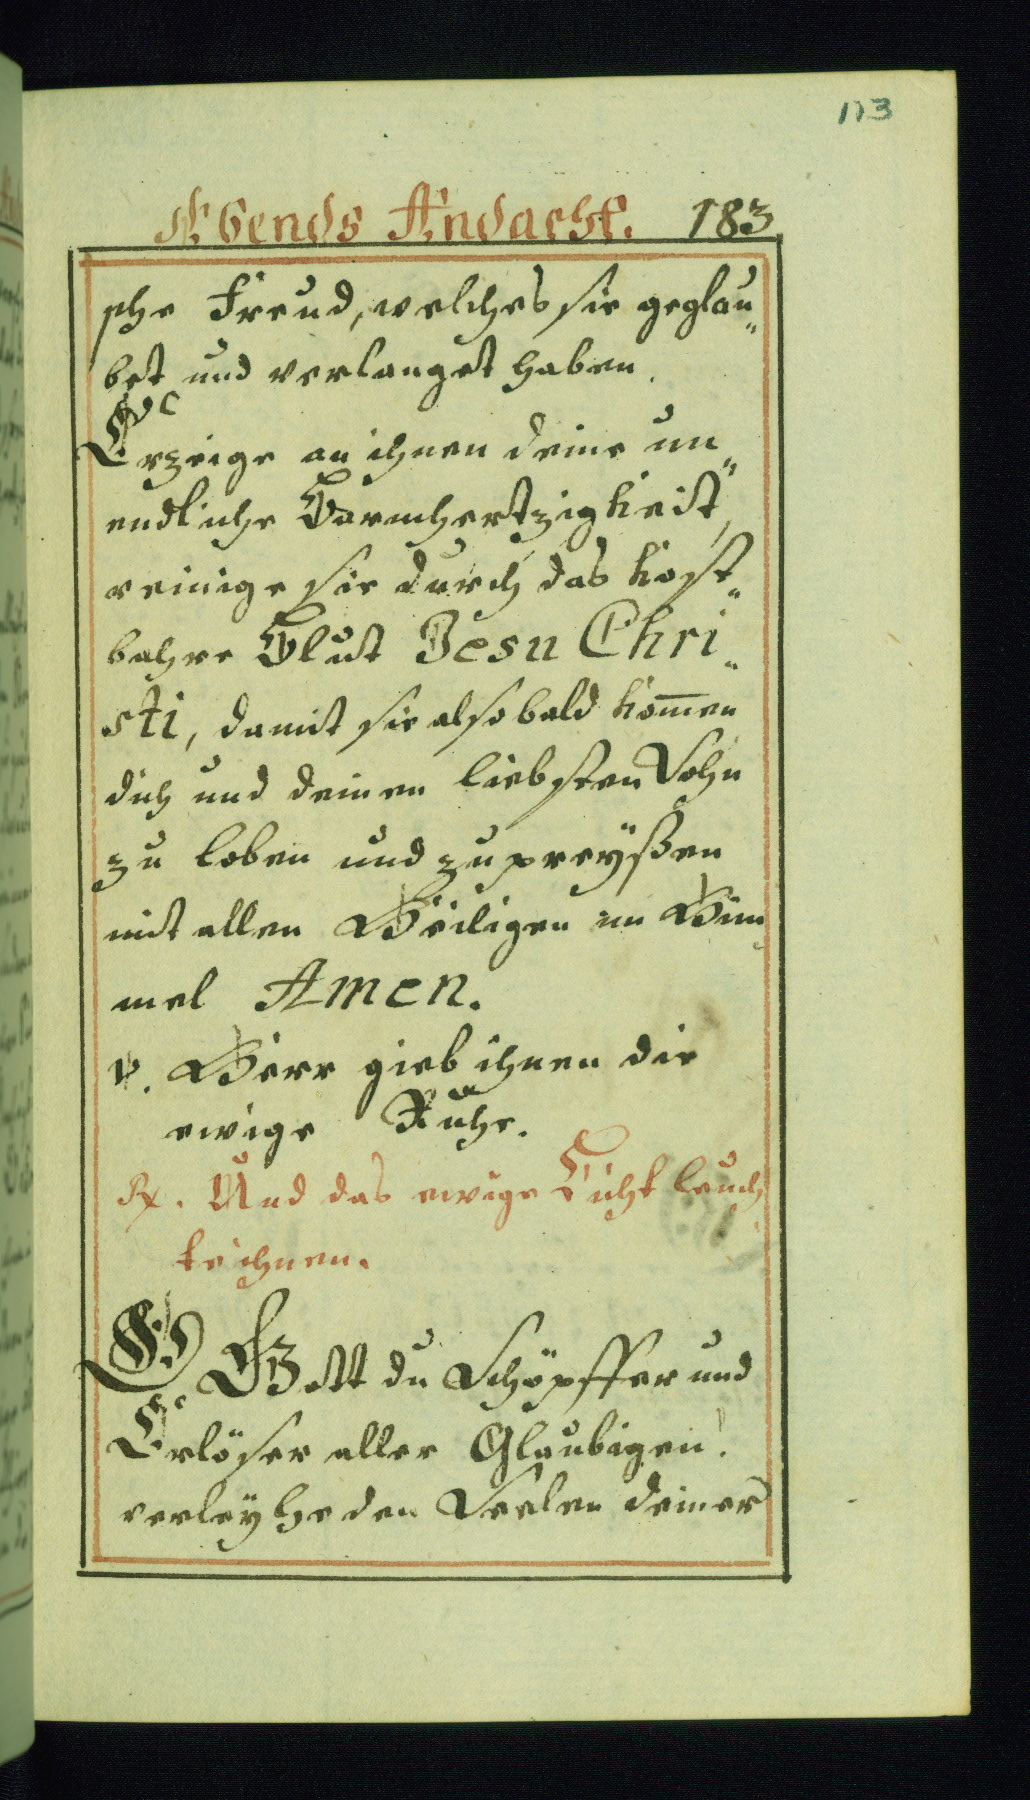 113
Abends Andacht. 183
sche Freud, welches sie geglau„
bet und verlanget haben.
Erzeige an ihnen deine un„
endliche Barmhertzigkeit,
reinige sie durch das kost„
bahre Blut Jesu Chri„
sti, damit sie alsobald kom̅en
dich und deinen liebsten Sohn
zu loben und zu preyßen
mit allen Heiligen im Him„
mel Amen.
V. Herr gieb ihnen die
ewige Ruhe.
Rx. Und das ewige Licht leuch„
te ihnen.
O Gott du Schöpffer und
Erlöser aller Glaubigen!
verleyhe den Seelen deiner